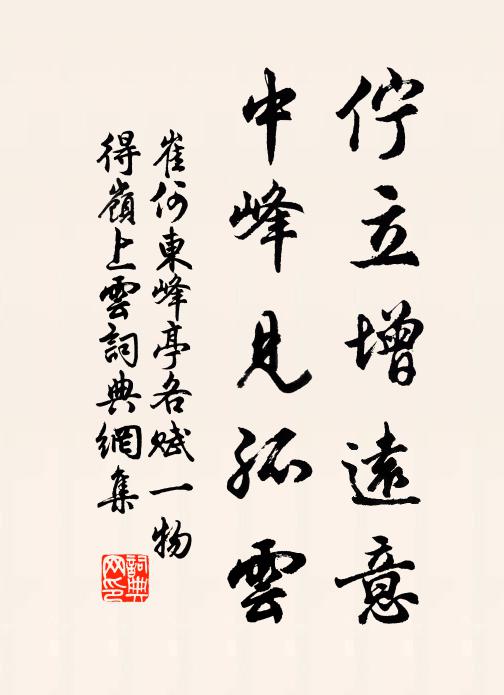 佇立增遠意
中峰見孤雲
崔何東峰亭各賦一物
得嶺上雲詞典網集
詞典网印